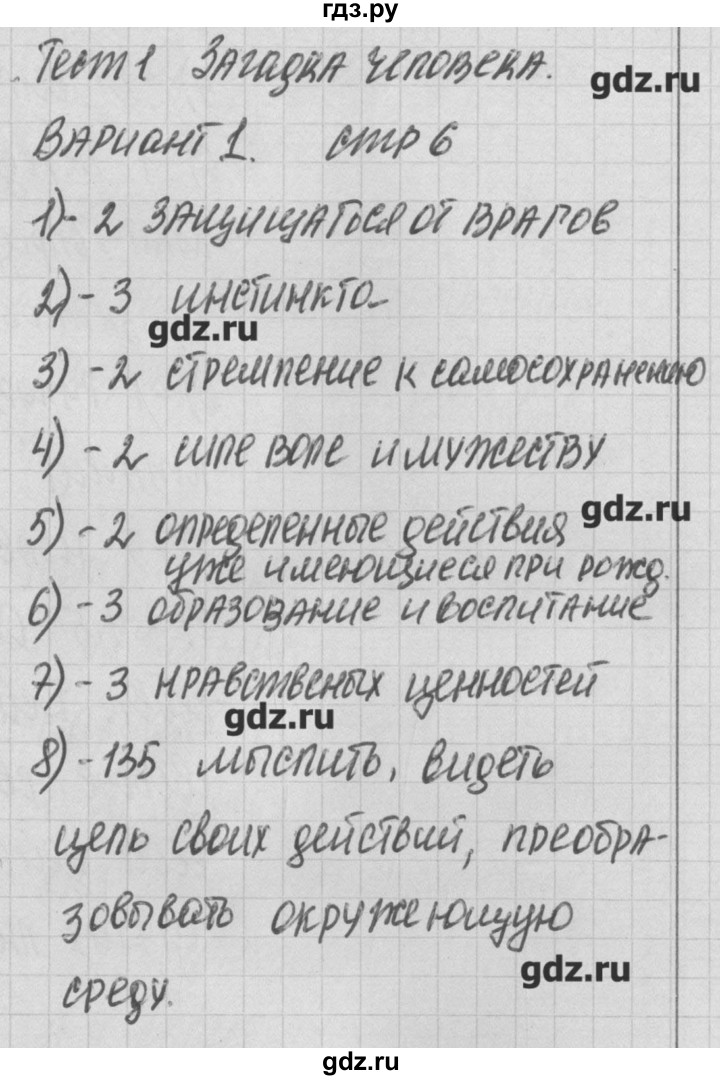 гдз.ру
Тест 1 Загадка человека.
gdz.ru
Вариант 1. стр 6
1)- 2 защищаться от врагов
2)- 3 инстинкто-
gdz.ru
3) - 2 стремление к самосохранению
4) - 2 силе воле и мужеству
gdz.ru
5) - 2 определенные действия
уже имеющиеся при рожд.
6) - 3 образование и воспитание
7) - 3 нравственых ценностей
gdz.ru
8) - 135 мыслить, видеть
цель своих действий, преобра-
зовывать окружеющую
gdz.ru
среду.
gdz.ru